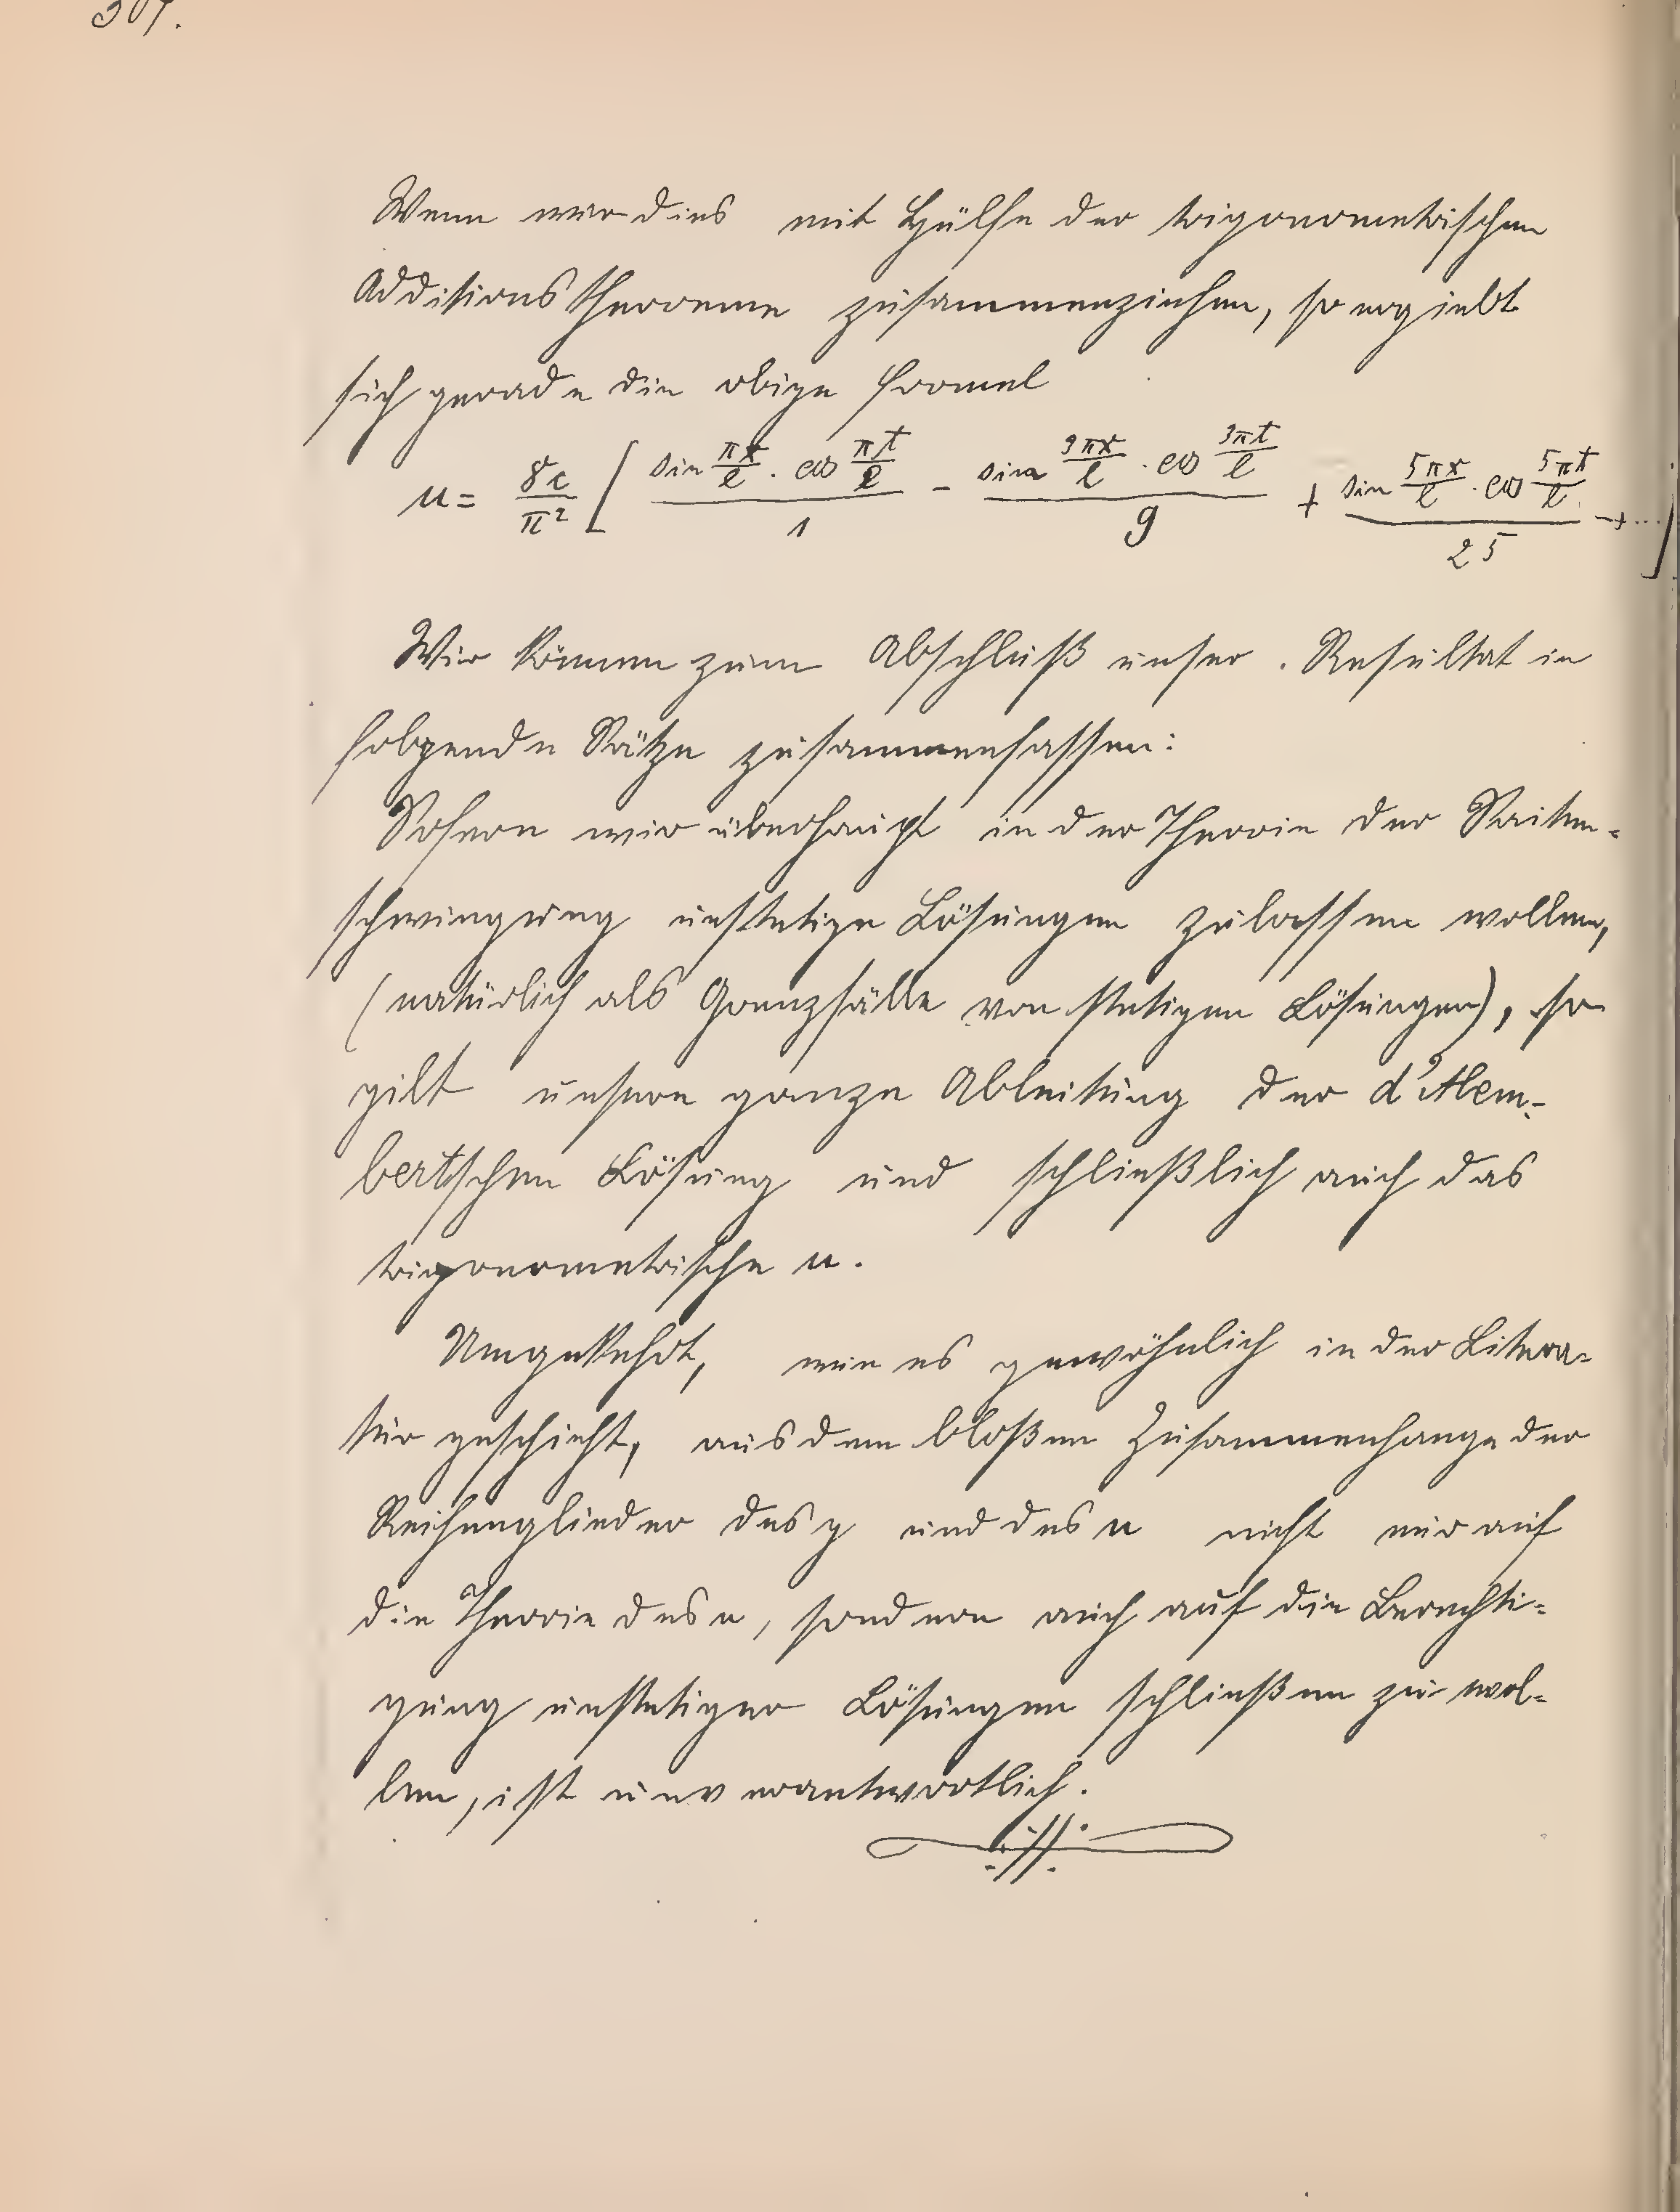 Wenn wir dies mit Hülfe der trigonometrischen
Additionstheoreme zusammenziehen, so ergiebt
sich gerade die obige Formel
u = 8c/π² [ (sin πx/l · cos πt/l)/1 - (sin 3πx/l · cos 3πt/l)/9 + (sin 5πx/l · cos 5πt/l)/25 -+... ]
Wir können zum Abschluß unser . Resultat in
folgende Sätze zusammenfassen:
Sofern wir überhaupt in der Theorie der Saiten-
schwingung unstetige Lösungen zulassen wollen,
(natürlich als Grenzfälle von stetigen Lösungen), so
gilt unsere ganze Ableitung der d'Alem-
bertschen Lösung und schließlich auch das
trigonometrische u.
Umgekehrt, wie es gewöhnlich in der Litera-
tur geschieht, aus dem bloßen Zusammenhange der
Reihenglieder des y und des u nicht nur auf
die Theorie des u, sondern auch auf die Berechti-
gung unstetiger Lösungen schließen zu wol-
len, ist unverantwortlich.